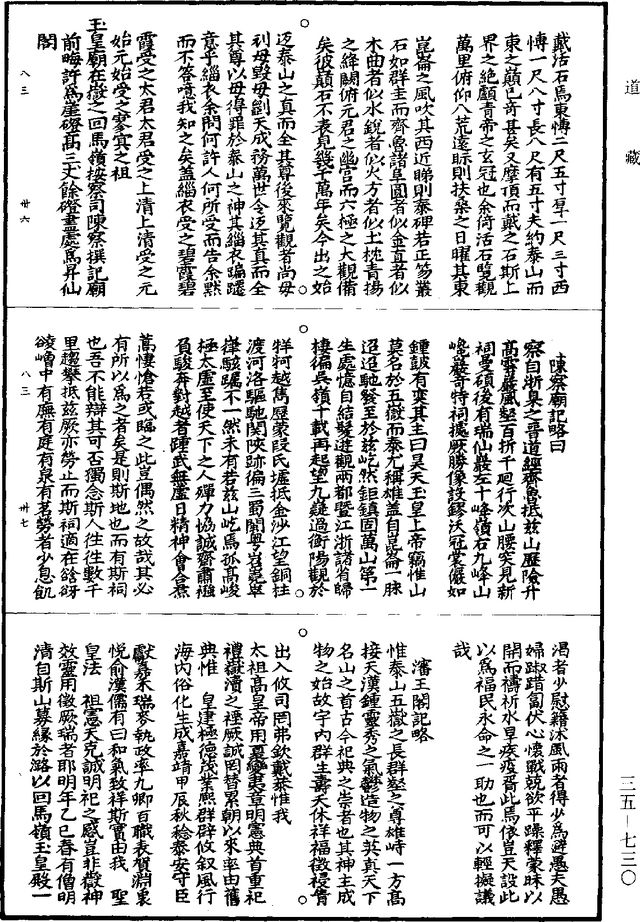 道藏
戴活石焉東博二尺五寸厚一尺三寸西
博一尺八寸長八尺有五寸夫約泰山而
東之巔已奇甚矣又摩頂而戴之石斯上
界之絶顱青帝之玄冠也余倚活石覽觀
萬里俯仰八荒遠眎則扶桑之日曜其東
崑崙之風吹其西近睇則泰碑若正笏叢
石如群圭而齊魯諸阜圜者似金直者似
木曲者似水銳者似火方者似土枕青揚
之絳闕俯元君之幽宮而六極之大觀備
矣彼巔石不表見幾千萬年矣今出之始
返泰山之真而全其尊後來覽觀者尚毋
刓毋毀毋劖天成務萬世令返其真而全
其尊以毋得罪於泰山之神其緇衣蹁躚
意乎緇衣余問何許人何所受而告余黙
而不答嘻我知之矣盖緇衣受之碧霞碧
霞受之太君太君受之上清上清受之元
始元始受之寥寘之祖
玉皇廟在嶽之回馬嶺按察司陳察撰記廟
前晦許爲崖磴高三丈餘磴畫處爲昇仙
閣
八三 卅六
陳察廟記略曰
察自浙臬之晋道經齊魯抵兹山歷險升
高雲巖風壑百折千廻行次山腰突見新
祠曼碩後有瑞仙巖左十峰嶺右九峰山
巉巖奇特祠據厥勝像設鏐沃冠裳儼如
鍾鼓有奕其主曰昊天玉皇上帝竊惟山
莫名於五嶽而泰尤稱雄盖自崑崙一脉
迢迢馳發至於兹屹然鉅鎮固萬山第一
生處憶自結髮遊觀兩都暨江浙諸省歸
棲徧吳嶺千載再起望九嶷過衡陽觀於
牂牁越雋歷蒙段氏墟抵金沙江望銅柱
渡河洛驅馳関陝跡徧三蜀閩粤岧嶤崒
嵂駭矚不一然未有若兹山屹焉孤高峻
極太虛至使天下之人殫力協誠齋肅襁
負駿奔對越者踵武無虛日精神㑹合焄
蒿悽愴若或臨之此豈偶然之故哉其必
有所以爲之者矣是則斯地也而有斯祠
也吾不能辯其可否獨念斯人往往數千
里趨攀抵兹厥亦勞止而斯祠適在谽谺
崚嶒中有廡有庭有泉有茗勞者少息飢
八三 卅七
渴者少慰籍沐風雨者得少爲避愚夫愚
婦踧踖匐伏心懷戰兢欲平躁釋蒙昧以
開而禱祈水旱疾疫胥此焉依豈天設此
以爲福民永命之一助也而可以輕擬議
哉
瀋王閣記略
惟泰山五嶽之長群壑之尊雄峙一方高
接天漢鍾靈秀之氣鬱造物之英真天下
名山之首古今祀典之崇者也其神主成
物之始故宇内群生壽夭休祥福徵祲眚
出入攸司罔弗欽戴恭惟我
太祖高皇帝用夏變夷章明憲典首重祀
禮嶽瀆之禋厥誠罔替累朝以來率由舊
典惟 皇建極德茂業熙群辟攸叙風行
海内俗化生成嘉靖甲辰秋稔泰安守臣
獻嘉禾瑞麥執政率九卿百職表賀淵衷
悅俞漢儒有曰和氣致祥斯實由我 聖
皇法 祖憲天克誠明祀之感豈非嶽神
效靈用徵厥瑞者耶明年乙巳春有僧明
清自斯山募緣於潞以回馬嶺玉皇殿一
三五-七三〇